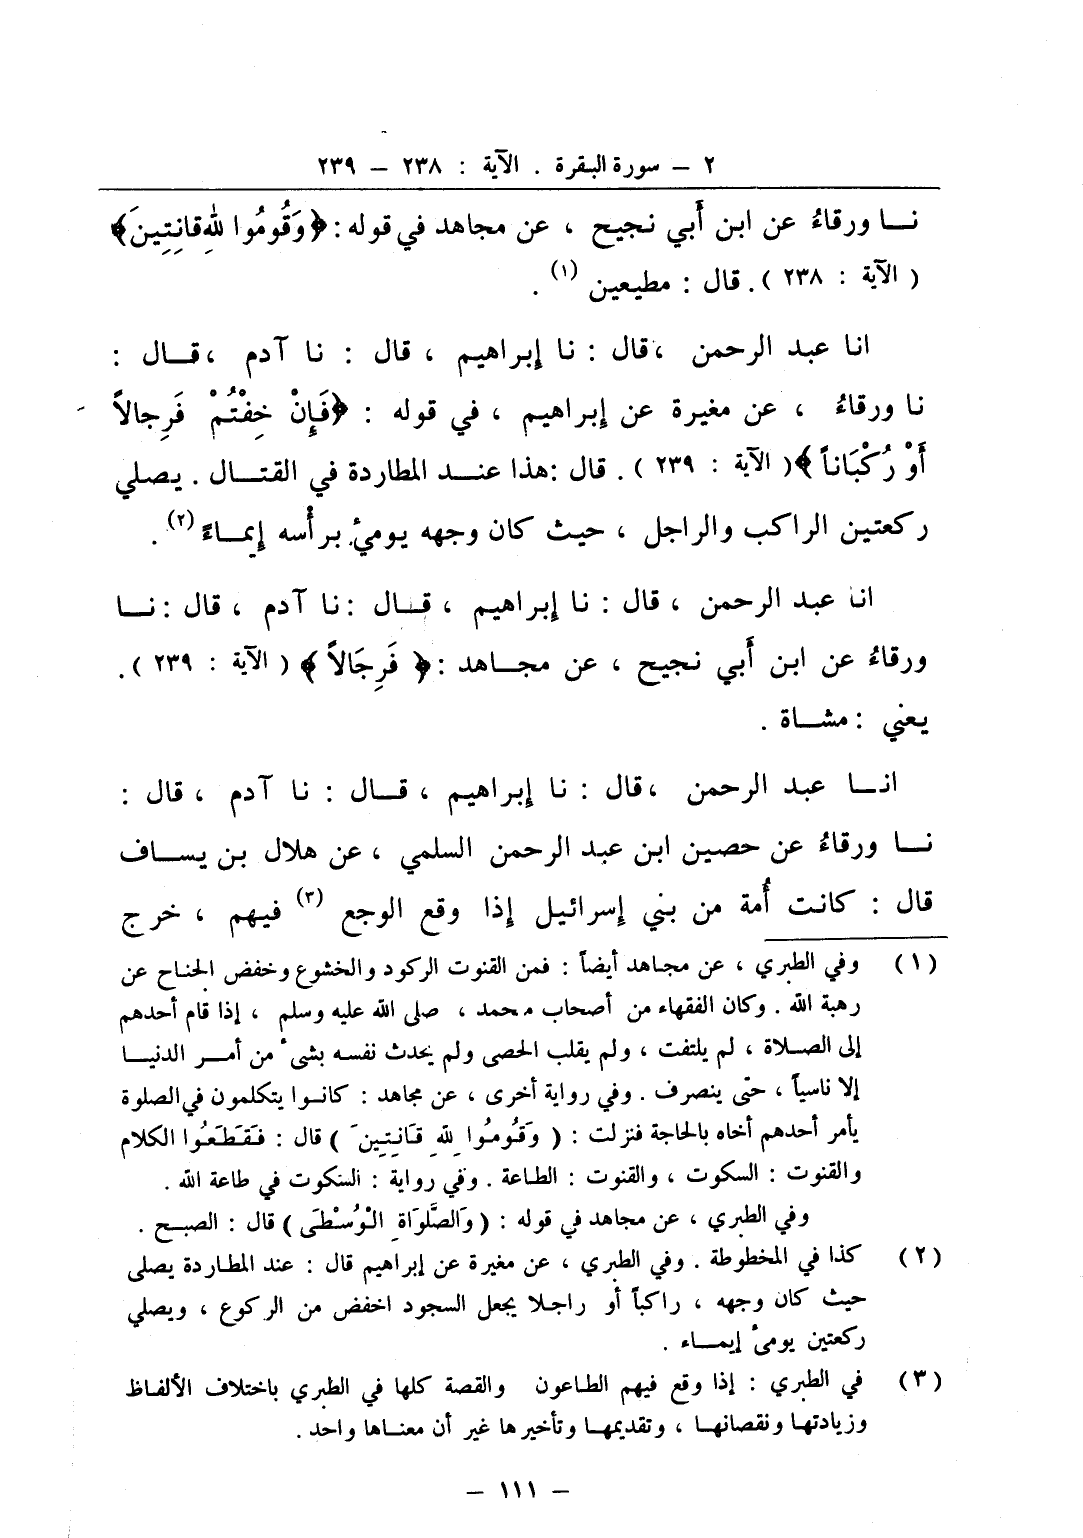 ٢ – سورة البقرة . الآية : ٢٣٨ – ٢٣٩
نــا ورقاءُ عن ابن أَبي نجيح ، عن مجاهد في قوله : ﴿وَقُومُوا لِلّهِ قانِتِينَ﴾
( الآية : ٢٣٨ ) . قال : مطيعين (١) .
انا عبد الرحمن ، قال : نا إبراهيم ، قال : نا آدم ، قــال :
نا ورقاءُ ، عن مغيرة عن إبراهيم ، في قوله : ﴿فَإِنْ خِفْتُمْ فَرِجالاً
أَوْ رُكْبَاناً﴾ ( الآية : ٢٣٩ ) . قال : هذا عنــد المطاردة في القتــال . يصلي
ركعتين الراكب والراجل ، حيث كان وجهه يومئُ برأْسه إيمــاءً (٢) .
انا عبد الرحمن ، قال : نا إبراهيم ، قــال : نا آدم ، قال : نــا
ورقاءُ عن ابن أَبي نجيح ، عن مجــاهد : ﴿ فَرِجَالاً ﴾ ( الآية : ٢٣٩ ) .
يعني : مشــاة .
انــا عبد الرحمن ، قال : نا إبراهيم ، قــال : نا آدم ، قال :
نــا ورقاءُ عن حصين ابن عبد الرحمن السلمي ، عن هلال بن يســاف
قال : كانت أُمة من بني إسرائيل إذا وقع الوجع (٣) فيهم ، خرج
(١) وفي الطبري ، عن مجاهد أيضاً : فمن القنوت الركود والخشوع وخفض الجناح عن
رهبة الله . وكان الفقهاء من أصحاب محمد ، صلى الله عليه وسلم ، إذا قام أحدهم
إلى الصــلاة ، لم يلتفت ، ولم يقلب الحصى ولم يحدث نفسه بشىء من أمــر الدنيــا
إلا ناسياً ، حتى ينصرف . وفي رواية أخرى ، عن مجاهد : كانــوا يتكلمون في الصلوة
يأمر أحدهم أخاه بالحاجة فنزلت : ( وَقُومُوا لِلهِ قَانِتِينَ ) قال : فَقَطَعُوا الكلام
والقنوت : السكوت ، والقنوت : الطــاعة . وفي رواية : السكوت في طاعة الله .
وفي الطبري ، عن مجاهد في قوله : ( وَالصَّلوَاةِ الْوُسْطَى ) قال : الصبــح .
(٢) كذا في المخطوطة . وفي الطبري ، عن مغيرة عن إبراهيم قال : عند المطــاردة يصلى
حيث كان وجهه ، راكباً أو راجلا يجعل السجود اخفض من الركوع ، ويصلي
ركعتين يومئ إيمــاء .
(٣) في الطبري : إذا وقع فيهم الطــاعون والقصة كلها في الطبري باختلاف الألفــاظ
وزيادتهــا ونقصانهــا ، وتقديمهــا وتأخيرها غير أن معنــاها واحد .
– ١١١ –